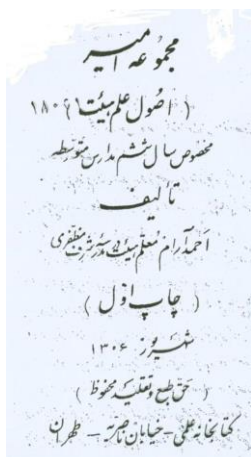 مجموعه امیر
( اصول علم هیئت )
مخصوص سال ششم مدارس متوسطه
تالیف
احمد آرام معلم هیئت مدرسه شرف مظفری
( چاپ اول )
شهریور ۱۳۰۶
( حق طبع و تقلید محفوظ )
کتابخانه علمی - خیابان ناصریه - طهران